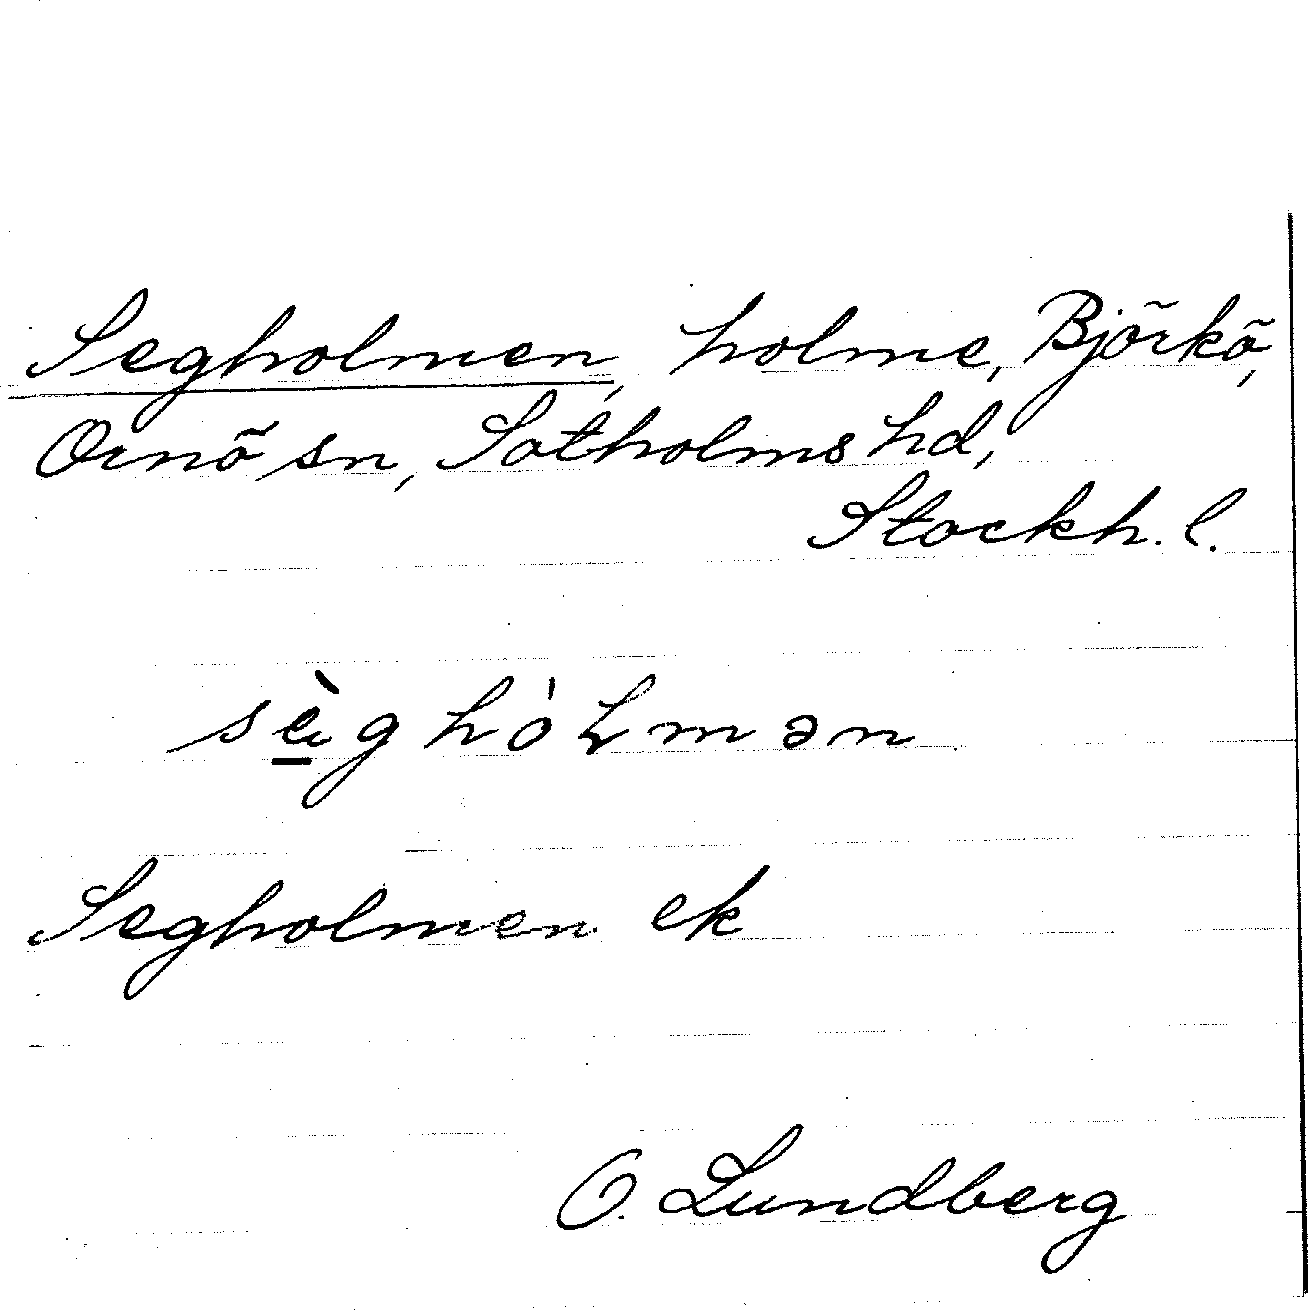 Segholmen, holme, Björkö,
Ornö sn, Sotholms hd,
Stockh. l.
Segholmen ek
O. Lundberg